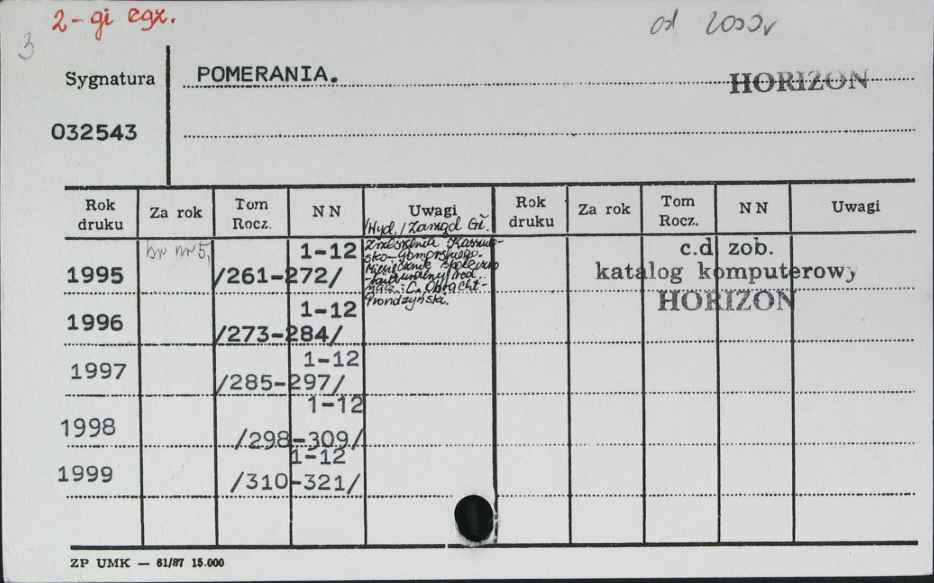 2-gi egz.
od 2000r
3
Sygnatura POMERANIA. HORIZON
032543
Rok druku Za rok Tom Rocz. NN Uwagi Rok druku Za rok Tom Rocz. NN Uwagi
/Wyd./Zarząd Gł.
Zrzeszenia Kaszub-
sko-Pomorskiego.
Miesięcznik społeczno
kulturalny/red
C. Obracht-
Prondzyński.
br nr 5,
1995 1-12
/261-272/
1996 1-12
/273-284/
1997 1-12
/285-297/
1998 1-12
/298-309/
1999 1-12
/310-321/
c.d. zob.
katalog komputerowy
HORIZON
ZP UMK — 61/87 15.000